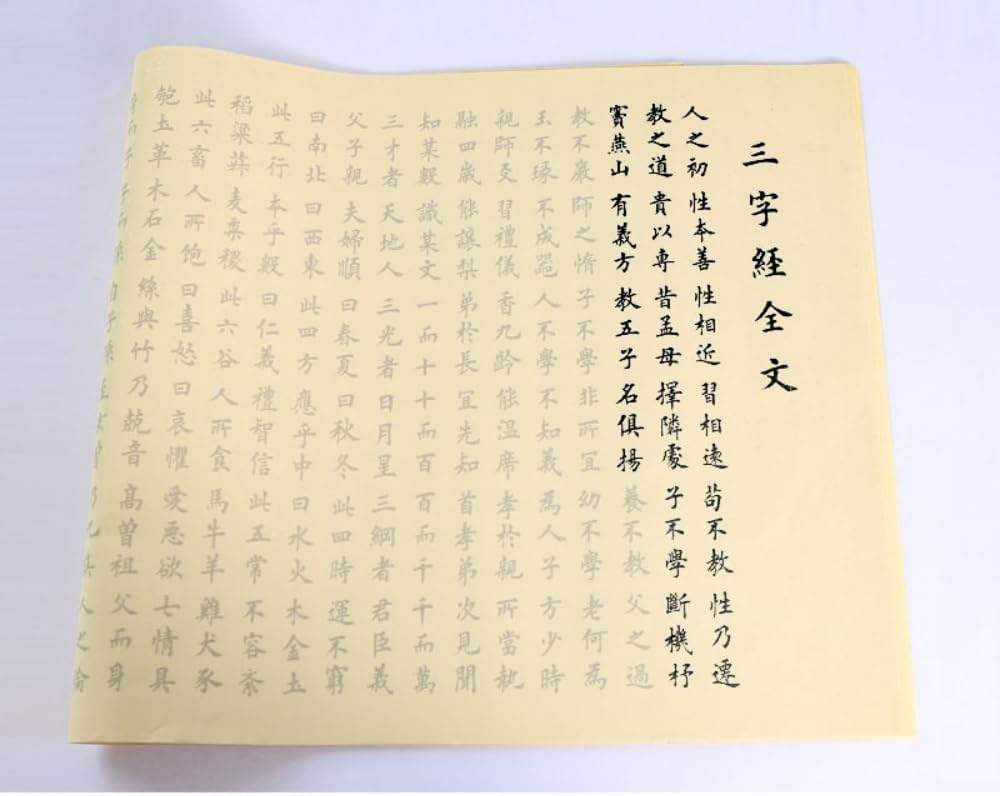 三字經全文
人之初 性本善 性相近 習相遠 苟不教 性乃遷
教之道 貴以專 昔孟母 擇隣處 子不學 斷機杼
竇燕山 有義方 教五子 名俱揚 養不教 父之過
教不嚴 師之惰 子不學 非所宜 幼不學 老何為
玉不琢 不成器 人不學 不知義 為人子 方少時
親師友 習禮儀 香九齡 能溫席 孝於親 所當執
融四歲 能讓梨 弟於長 宜先知 首孝弟 次見聞
知某數 識某文 一而十 十而百 百而千 千而萬
三才者 天地人 三光者 日月星 三綱者 君臣義
父子親 夫婦順 曰春夏 曰秋冬 此四時 運不窮
曰南北 曰西東 此四方 應乎中 曰水火 木金土
此五行 本乎數 曰仁義 禮智信 此五常 不容紊
稻粱菽 麥黍稷 此六谷 人所食 馬牛羊 雞犬豕
此六畜 人所飽 曰喜怒 曰哀懼 愛惡欲 七情具
匏土革 木石金 絲與竹 乃 音 高曾祖 父而身